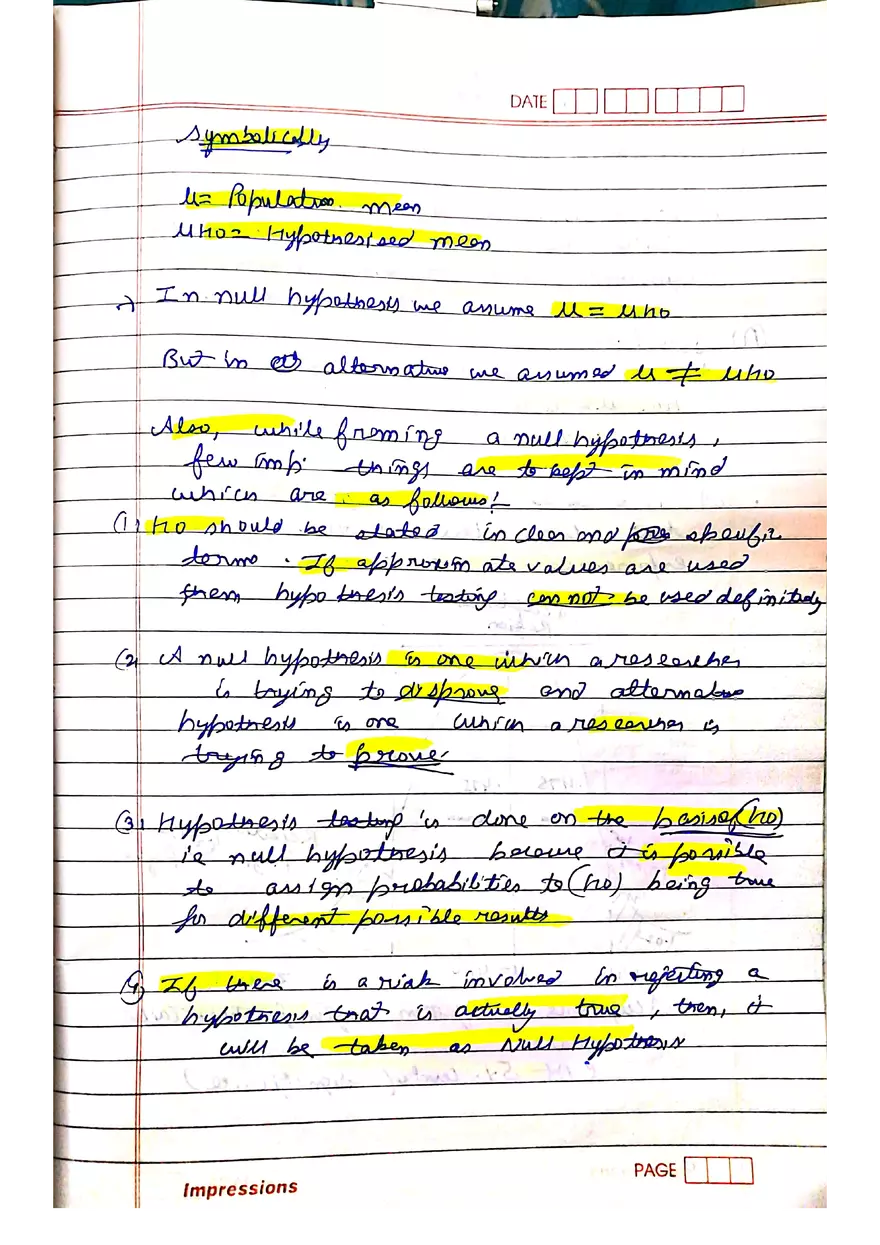 DATE
Symbolically
μ = Population mean
μH0 = Hypothesised mean
→ In null hypothesis we assume μ = μH0
But in alternative we assumed μ ≠ μH0
Also, while framing a null hypothesis,
few imp. things are to kept in mind
which are as follows!
(1) H0 should be stated in clear and specific
terms. If approximate values are used
them hypothesis testing cannot be used definitely
(2) A null hypothesis is one which a researcher
is trying to disprove and alternative
hypothesis is one which a researcher is
trying to prove.
(3) Hypothesis testing is done on the basis of (H0)
ie null hypothesis because it is possible
to assign probabilities to (H0) being true
for different possible results
(4) If there is a risk involved in rejecting a
hypothesis that is actually true, then, it
will be taken as Null Hypothesis
PAGE
Impressions